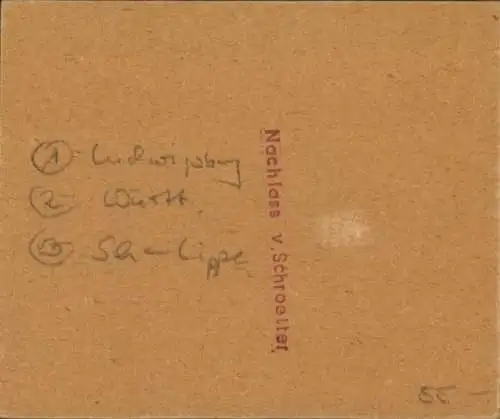 ① Ludwigsburg
② Württ.
③ Sch-Lippe
Nachlass v. Schroetter
55 -